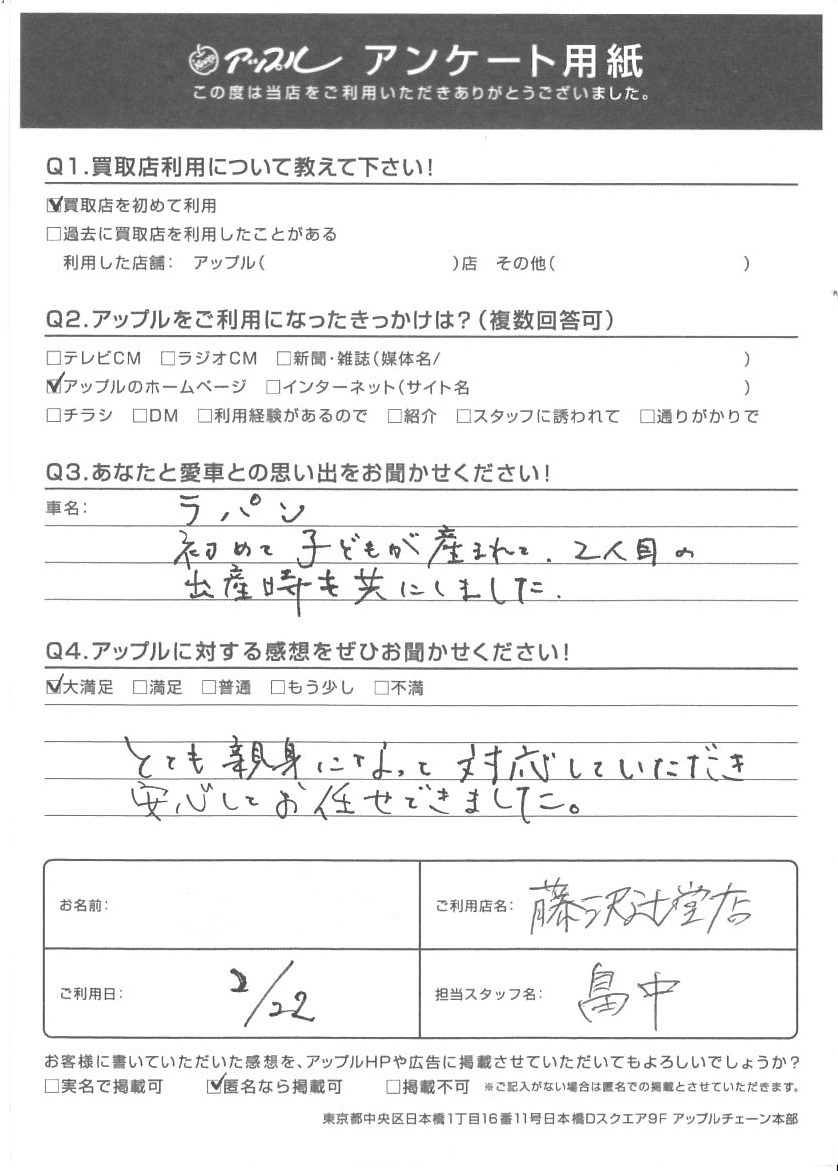 アップル アンケート用紙
この度は当店をご利用いただきありがとうございました。
Q1.買取店利用について教えて下さい!
☑買取店を初めて利用
□過去に買取店を利用したことがある
利用した店舗: アップル( )店 その他( )
Q2.アップルをご利用になったきっかけは?(複数回答可)
□テレビCM □ラジオCM □新聞・雑誌(媒体名/ )
☑アップルのホームページ □インターネット(サイト名 )
□チラシ □DM □利用経験があるので □紹介 □スタッフに誘われて □通りがかりで
Q3.あなたと愛車との思い出をお聞かせください!
車名: ラパン
初めて子どもが産まれて、2人目の
出産時も共にしました.
Q4.アップルに対する感想をぜひお聞かせください!
☑大満足 □満足 □普通 □もう少し □不満
とても親身になって対応していただき
安心してお任せできました。
お名前:
ご利用店名: 藤沢辻堂店
ご利用日: 2/22
担当スタッフ名: 畠中
お客様に書いていただいた感想を、アップルHPや広告に掲載させていただいてもよろしいでしょうか?
□実名で掲載可 ☑匿名なら掲載可 □掲載不可 ※ご記入がない場合は匿名での掲載とさせていただきます。
東京都中央区日本橋1丁目16番11号日本橋Dスクエア9F アップルチェーン本部